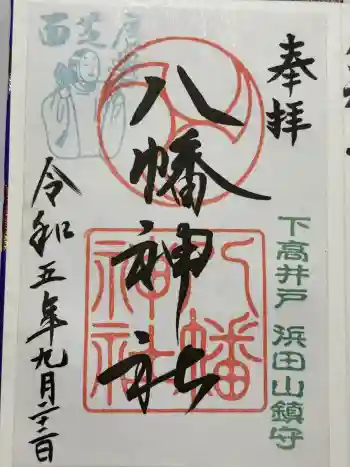 奉拝
八幡神社
下高井戸 浜田山鎮守
八幡神社
令和五年九月二三日